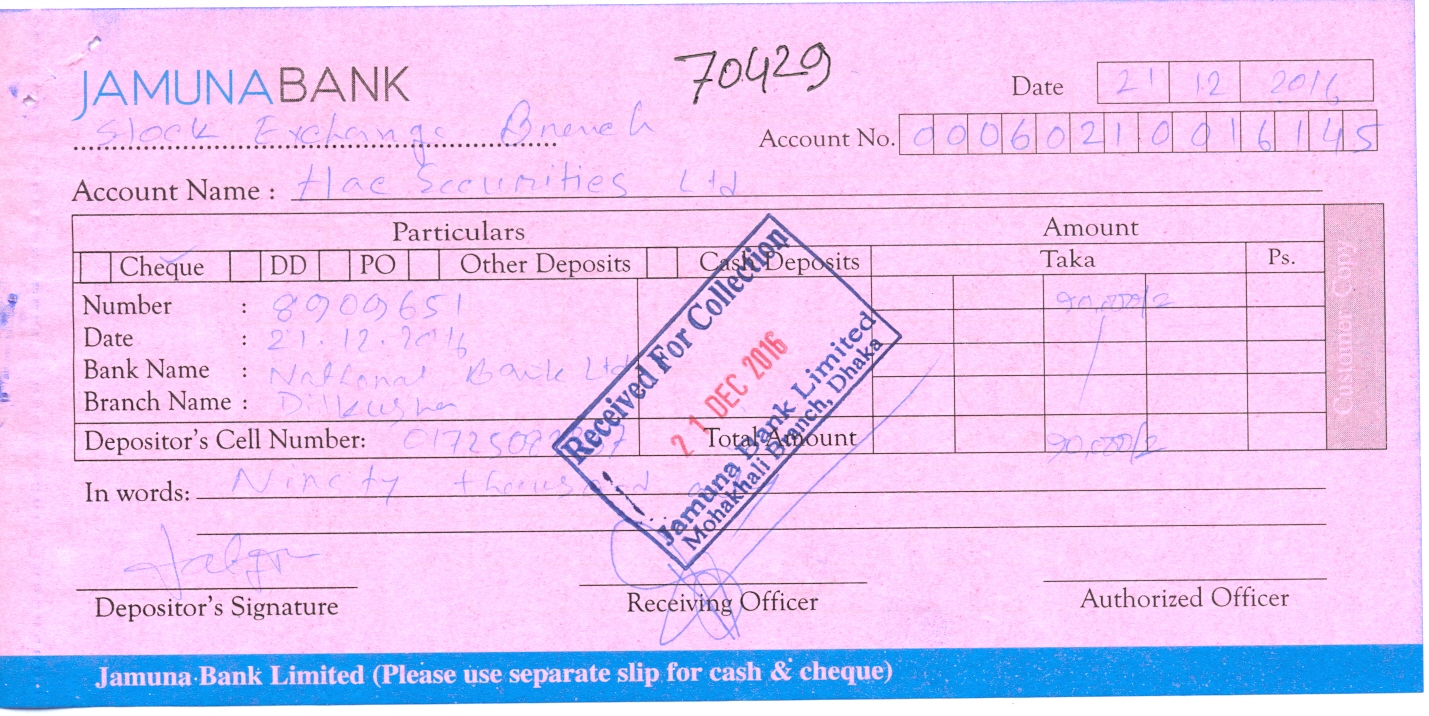 70429
JAMUNABANK
Date 21 12 2016
Stock Exchange Branch
Account No. 00060210016145
Account Name : Hac Securities Ltd
Particulars Amount
Cheque DD PO Other Deposits Cash Deposits Taka Ps.
Number : 8909651 90,000/2
Date : 21.12.2016
Bank Name : National Bank Ltd
Branch Name : Dilkusha
Depositor's Cell Number: Total Amount 90,000/2
In words: Ninety thousand
Received For Collection
21 DEC 2016
Jamuna Bank Limited
Mohakhali Branch, Dhaka
Customer Copy
Depositor's Signature Receiving Officer Authorized Officer
Jamuna Bank Limited (Please use separate slip for cash & cheque)